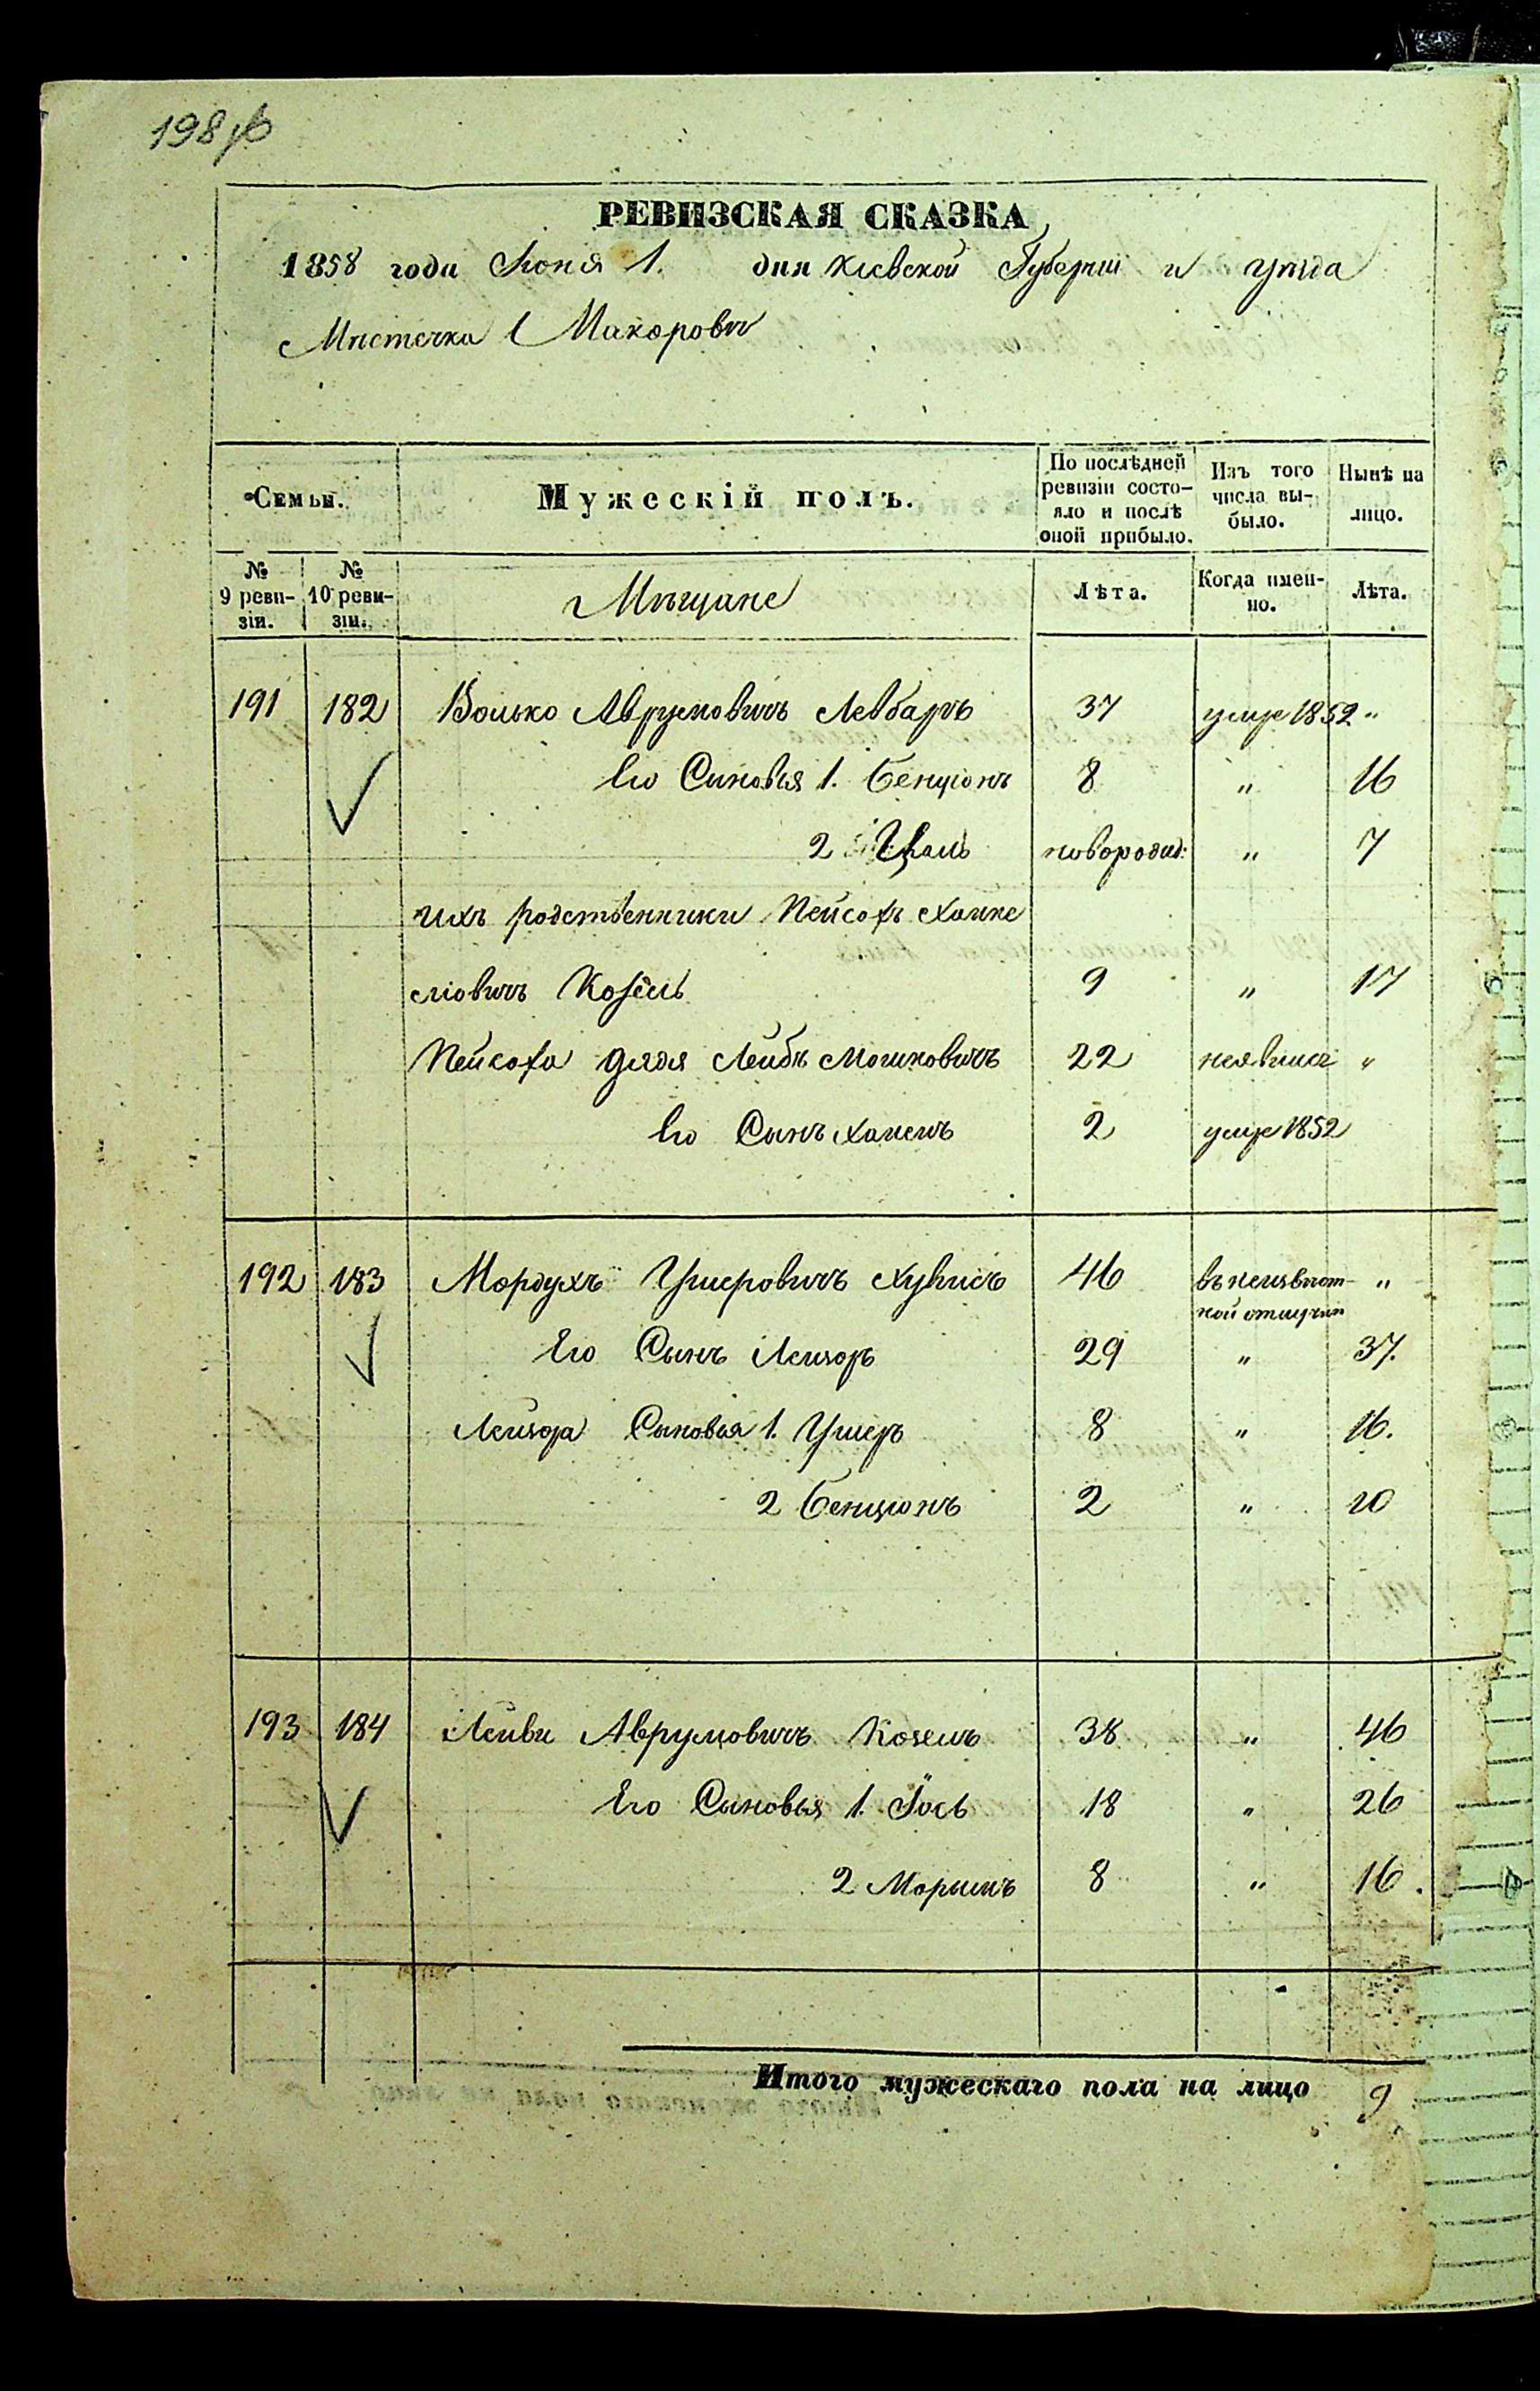 РЕВИЗСКАЯ СКАЗКА
1858 года Іюня 1. дня Кіевской Губерніи и уѣзда
Мѣстечка Макорова
Семьи. Мужескій полъ. По послѣдней ревизіи состояло и послѣ оной прибыло. Изъ того числа выбыло. Нынѣ на лицо.
№ 9 ревизіи. № 10 ревизіи. Мѣщане Лѣта. Когда именно. Лѣта.
191 182 Волько Аврумовичъ Левбаръ 37 умре 1852 "
Его Сыновья 1. Бенціонъ 8 " 16
2 новорожд: " 7
ихъ родственники Пейсохъ
Козель 9 " 17
Пейсоха дядя Лейбъ Мошковичъ 22 неявился "
Его Сынъ Хаимъ 2 умре 1852
192 183 Мордухъ Ушеровичъ 46 въ неизвѣст- "
ной отлучкѣ
Его Сынъ Лейзоръ 29 " 37.
Лейзора Сыновья 1. Ушеръ 8 " 16.
2 Бенціонъ 2 " 10
193 184 Лейви Аврумовичъ Козель 38 " 46
Его Сыновья 1. Іось 18 " 26
2 8 " 16.
Итого мужескаго пола на лицо 9